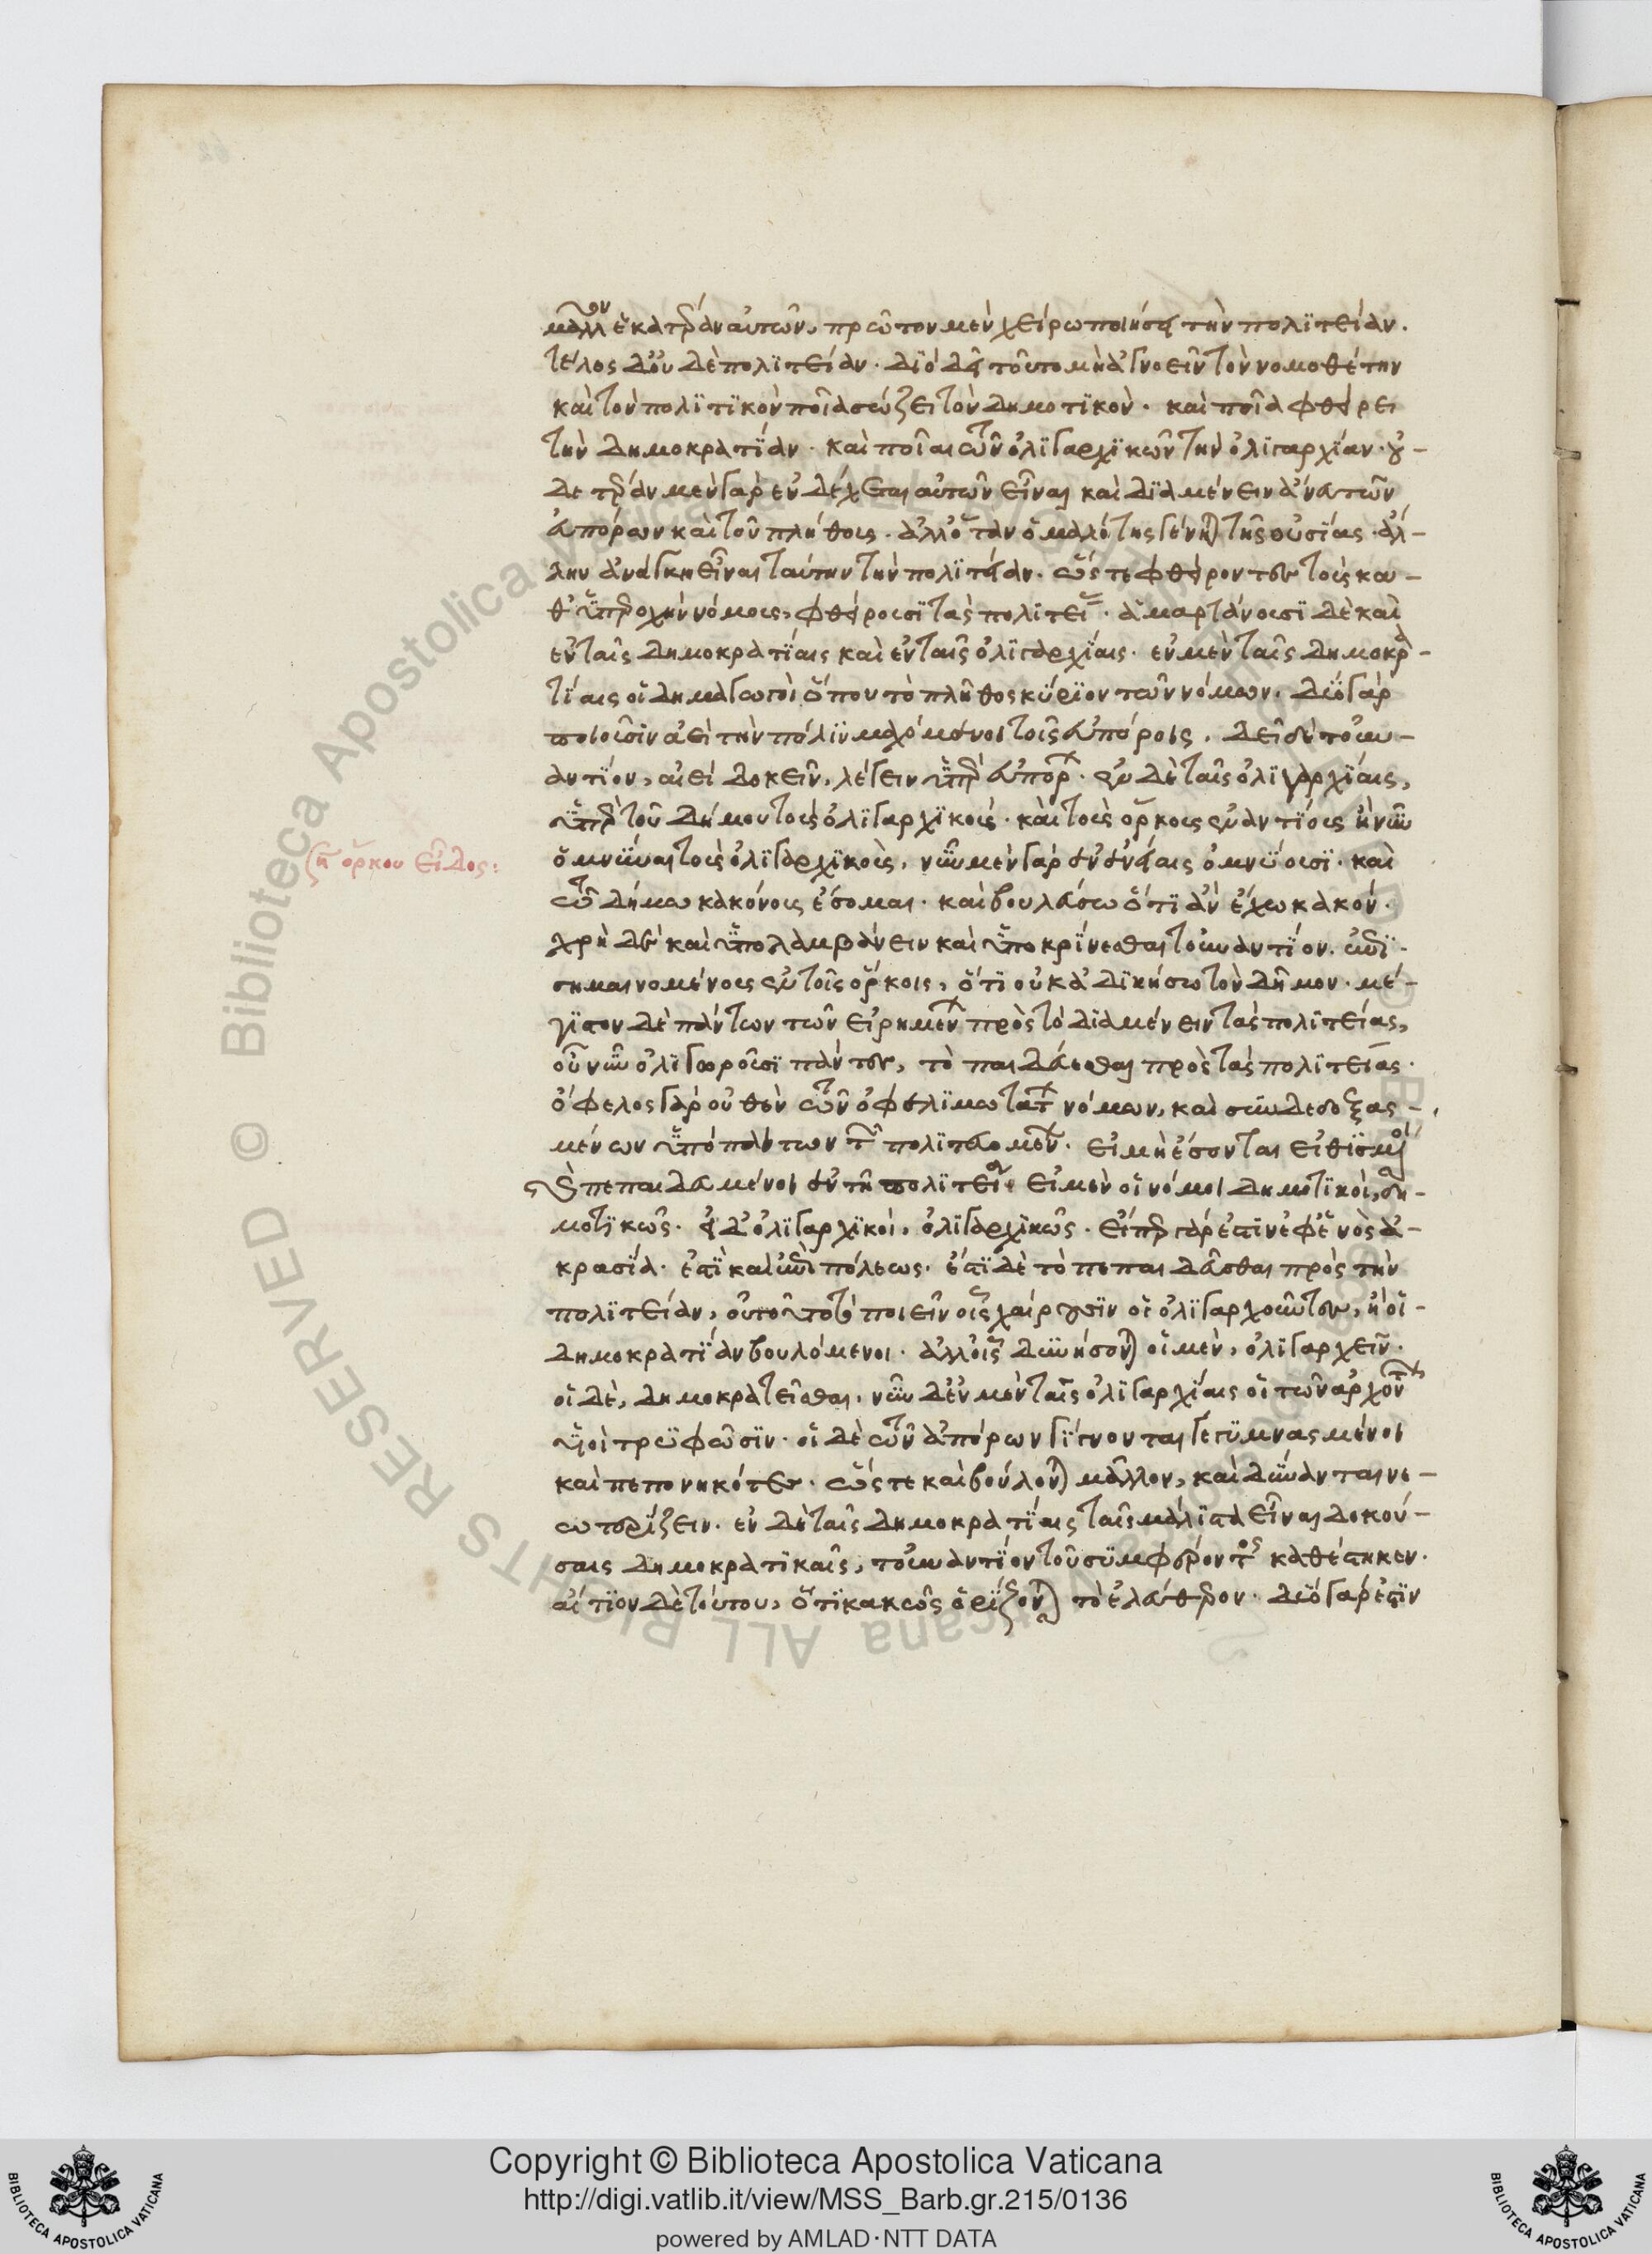 μᾶλλον ἑκατέραν αὐτῶν, πρῶτον μὲν χείρω ποιήσει τὴν πολιτείαν.
τέλος δ' οὐ δὲ πολιτείαν. διὸ δεῖ τοῦτο μὴ ἀγνοεῖν τὸν νομοθέτην
καὶ τὸν πολιτικὸν ποῖα σώζει τὸν δημοτικὸν. καὶ ποῖα φθείρει
τὴν δημοκρατίαν. καὶ ποῖαι τῶν ὀλιγαρχικῶν τὴν ὀλιγαρχίαν. οὐ-
δετέραν μὲν γὰρ ἐνδέχεται αὐτῶν εἶναι καὶ διαμένειν ἄνευ τῶν
εὐπόρων καὶ τοῦ πλήθους. ἀλλ' ὅταν ὁμαλότης γένηται τῆς οὐσίας. ἄλ-
λην ἀνάγκη εἶναι ταύτην τὴν πολιτείαν. ὥστε φθείροντες τοὺς κα-
θ' ὑπεροχὴν νόμους, φθείρουσι τὰς πολιτείας. ἁμαρτάνουσι δὲ καὶ
ἐν ταῖς δημοκρατίαις καὶ ἐν ταῖς ὀλιγαρχίαις. ἐν μὲν ταῖς δημοκρα-
τίαις οἱ δημαγωγοὶ ὅπου τὸ πλῆθος κύριον τῶν νόμων. δύο γὰρ
ποιοῦσιν ἀεὶ τὴν πόλιν μαχόμενοι τοῖς εὐπόροις. δεῖ δὲ τοὐν-
αντίον, αἰεὶ δοκεῖν, λέγειν ὑπὲρ εὐπόρων. ἐν δὲ ταῖς ὀλιγαρχίαις,
ὑπὲρ τοῦ δήμου τοὺς ὀλιγαρχικοὺς. καὶ τοὺς ὅρκους ἐναντίους ἢ νῦν
ὀμνύναι τοὺς ὀλιγαρχικοὺς, νῦν μὲν γὰρ ἐν ἐνίαις ὀμνύουσι. καὶ
τῷ δήμῳ κακόνους ἔσομαι. καὶ βουλεύσω ὅτι ἂν ἔχω κακόν.
χρὴ δὲ καὶ ὑπολαμβάνειν καὶ ὑποκρίνεσθαι τοὐναντίον. ἐπι-
σημαινομένους ἐν τοῖς ὅρκοις, ὅτι οὐκ ἀδικήσω τὸν δῆμον. μέ-
γιστον δὲ πάντων τῶν εἰρημένων πρὸς τὸ διαμένειν τὰς πολιτείας,
οὗ νῦν ὀλιγωροῦσι πάντες, τὸ παιδεύεσθαι πρὸς τὰς πολιτείας.
ὄφελος γὰρ οὐθὲν τῶν ὀφελιμωτάτων νόμων, καὶ συνδεδοξας-
μένων ὑπὸ πάντων τῶν πολιτευομένων. εἰ μὴ ἔσονται εἰθισμένοι
καὶ πεπαιδευμένοι ἐν τῇ πολιτείᾳ εἰ μὲν οἱ νόμοι δημοτικοὶ, δη-
μοτικῶς. εἰ δ' ὀλιγαρχικοὶ, ὀλιγαρχικῶς. εἴπερ γάρ ἐστιν ἐφ' ἑνὸς ἀ-
κρασία. ἐστὶ καὶ ἐπὶ πόλεως. ἔστι δὲ τὸ πεπαιδεῦσθαι πρὸς τὴν
πολιτείαν, οὐ τοῦτο τὸ ποιεῖν οἷς χαίρουσιν οἱ ὀλιγαρχοῦντες, ἢ οἱ
δημοκρατίαν βουλόμενοι. ἀλλ' οἷς δυνήσονται οἱ μὲν, ὀλιγαρχεῖν.
οἱ δὲ, δημοκρατεῖσθαι. νῦν δ' ἐν μὲν ταῖς ὀλιγαρχίαις οἱ τῶν ἀρχόντων
υἱοὶ τρυφῶσιν. οἱ δὲ τῶν ἀπόρων γίγνονται γεγυμνασμένοι
καὶ πεπονηκότες. ὥστε καὶ βούλονται μᾶλλον, καὶ δύνανται νε-
ωτερίζειν. ἐν δὲ ταῖς δημοκρατίαις ταῖς μάλιστα εἶναι δοκού-
σαις δημοκρατικαῖς, τοὐναντίον τοῦ συμφέροντος καθέστηκεν.
αἴτιον δὲ τούτου, ὅτι κακῶς ὁρίζονται τὸ ἐλεύθερον. δύο γάρ ἐστιν
ση ὅρκου εἶδος:
Copyright © Biblioteca Apostolica Vaticana
http://digi.vatlib.it/view/MSS_Barb.gr.215/0136
powered by AMLAD·NTT DATA
BIBLIOTECA APOSTOLICA VATICANA
BIBLIOTECA APOSTOLICA VATICANA